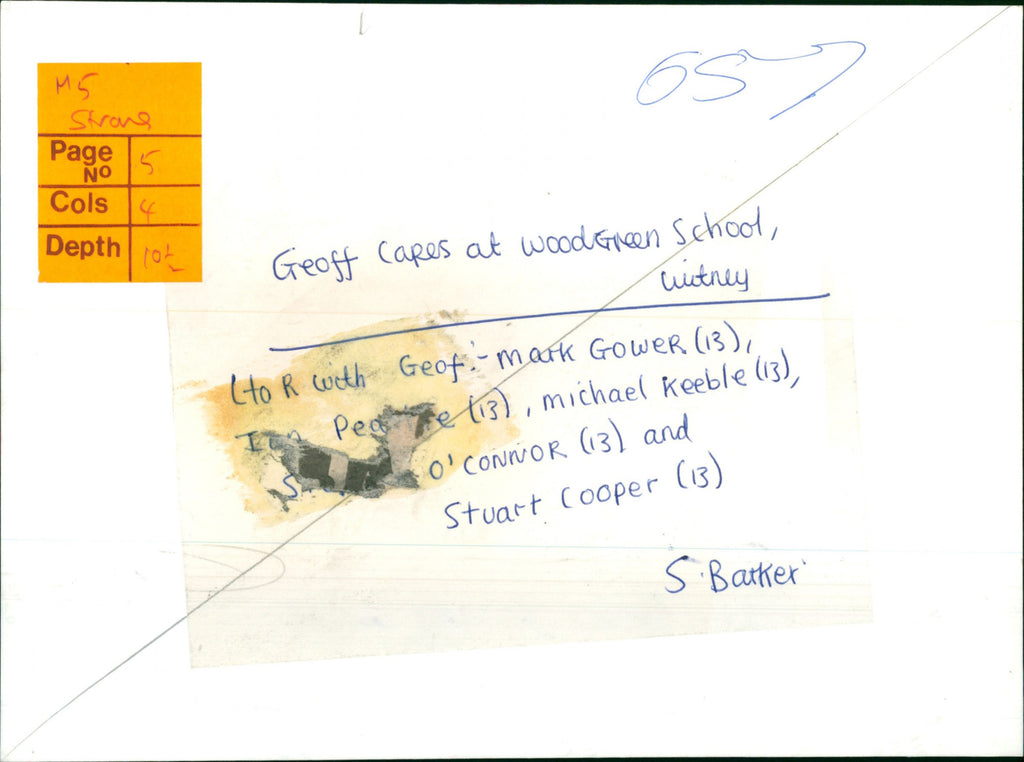 M5
Page No 5
Cols 4
Depth 10½
Geoff Capes at WoodGreen School,
Witney
L to R with Geof:- Mark GOWER (13),
(13), michael Keeble (13),
O'CONNOR (13) and
Stuart Cooper (13)
S. Barker